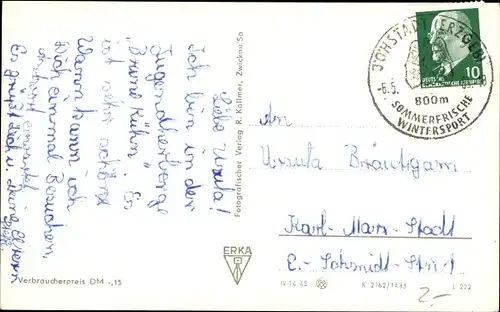 Liebe Ursula!
Ich bin in der
Jugendherberge
"Bruno Kühn". Es
ist sehr schön.
Wann kann ich
Dich einmal besuchen.
einmal
Es grüßt Dich u. Deine Eltern
Fotografischer Verlag R. Kallmer, Zwickau/Sa
Verbraucherpreis DM -,15
ERKA
IV-14-45
K 2162/1433
L 272
JÖHSTADT (ERZGEB)
-6.5.
800m
SOMMERFRISCHE
WINTERSPORT
DEUTSCHE
DEMOKRATISCHE REPUBLIK
10
An
Ursula Bräutigam
Karl-Marx-Stadt
E.-Schmidt-Str. 1
2.-